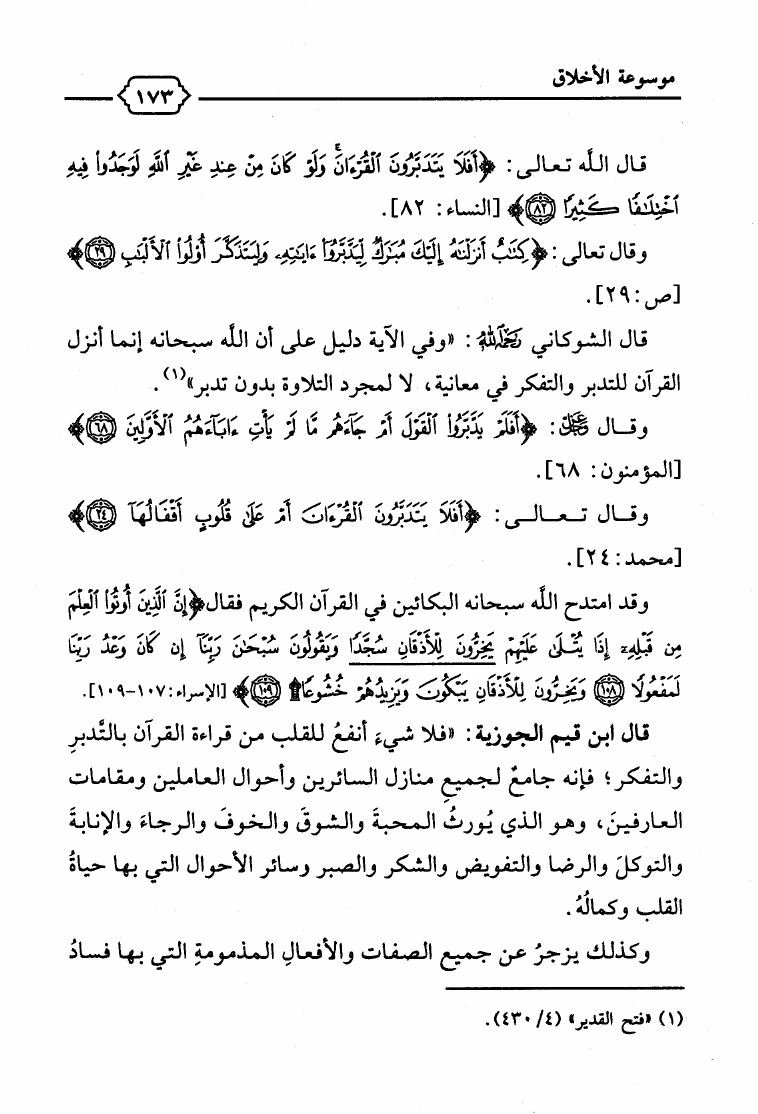 موسوعة الأخلاق
١٧٣
قال اللَّه تعالى: ﴿أَفَلَا يَتَدَبَّرُونَ ٱلْقُرْءَانَۚ وَلَوْ كَانَ مِنْ عِندِ غَيْرِ ٱللَّهِ لَوَجَدُوا۟ فِيهِ
ٱخْتِلَـٰفًا كَثِيرًا ﴿٨٢﴾﴾ [النساء: ٨٢].
وقال تعالى: ﴿كِتَـٰبٌ أَنزَلْنَـٰهُ إِلَيْكَ مُبَـٰرَكٌ لِّيَدَّبَّرُوٓا۟ ءَايَـٰتِهِۦ وَلِيَتَذَكَّرَ أُو۟لُوا۟ ٱلْأَلْبَـٰبِ ﴿٢٩﴾﴾
[ص: ٢٩].
قال الشوكاني رَحِمَهُ ٱللَّهُ: «وفي الآية دليل على أن اللَّه سبحانه إنما أنزل
القرآن للتدبر والتفكر في معانية، لا لمجرد التلاوة بدون تدبر»(١).
وقال عَزَّوَجَلَّ: ﴿أَفَلَمْ يَدَّبَّرُوا۟ ٱلْقَوْلَ أَمْ جَآءَهُم مَّا لَمْ يَأْتِ ءَابَآءَهُمُ ٱلْأَوَّلِينَ ﴿٦٨﴾﴾
[المؤمنون: ٦٨].
وقال تعالى: ﴿أَفَلَا يَتَدَبَّرُونَ ٱلْقُرْءَانَ أَمْ عَلَىٰ قُلُوبٍ أَقْفَالُهَآ ﴿٢٤﴾﴾
[محمد: ٢٤].
وقد امتدح اللَّه سبحانه البكائين في القرآن الكريم فقال﴿إِنَّ ٱلَّذِينَ أُوتُوا۟ ٱلْعِلْمَ
مِن قَبْلِهِۦٓ إِذَا يُتْلَىٰ عَلَيْهِمْ يَخِرُّونَ لِلْأَذْقَانِ سُجَّدًا وَيَقُولُونَ سُبْحَـٰنَ رَبِّنَآ إِن كَانَ وَعْدُ رَبِّنَا
لَمَفْعُولًا ﴿١٠٨﴾ وَيَخِرُّونَ لِلْأَذْقَانِ يَبْكُونَ وَيَزِيدُهُمْ خُشُوعًا۩ ﴿١٠٩﴾﴾ [الإسراء: ١٠٧-١٠٩].
قال ابن قيم الجوزية: «فلا شيءَ أنفعُ للقلب من قراءة القرآن بالتَّدبرِ
والتفكر؛ فإنه جامعٌ لجميعِ منازل السائرين وأحوال العاملين ومقامات
العارفينَ، وهو الذي يُورثُ المحبةَ والشوقَ والخوفَ والرجاءَ والإنابةَ
والتوكلَ والرضا والتفويض والشكر والصبر وسائر الأحوال التي بها حياةُ
القلب وكمالُهُ.
وكذلك يزجرُ عن جميع الصفات والأفعالِ المذمومةِ التي بها فسادُ
(١) «فتح القدير» (٤/ ٤٣٠).